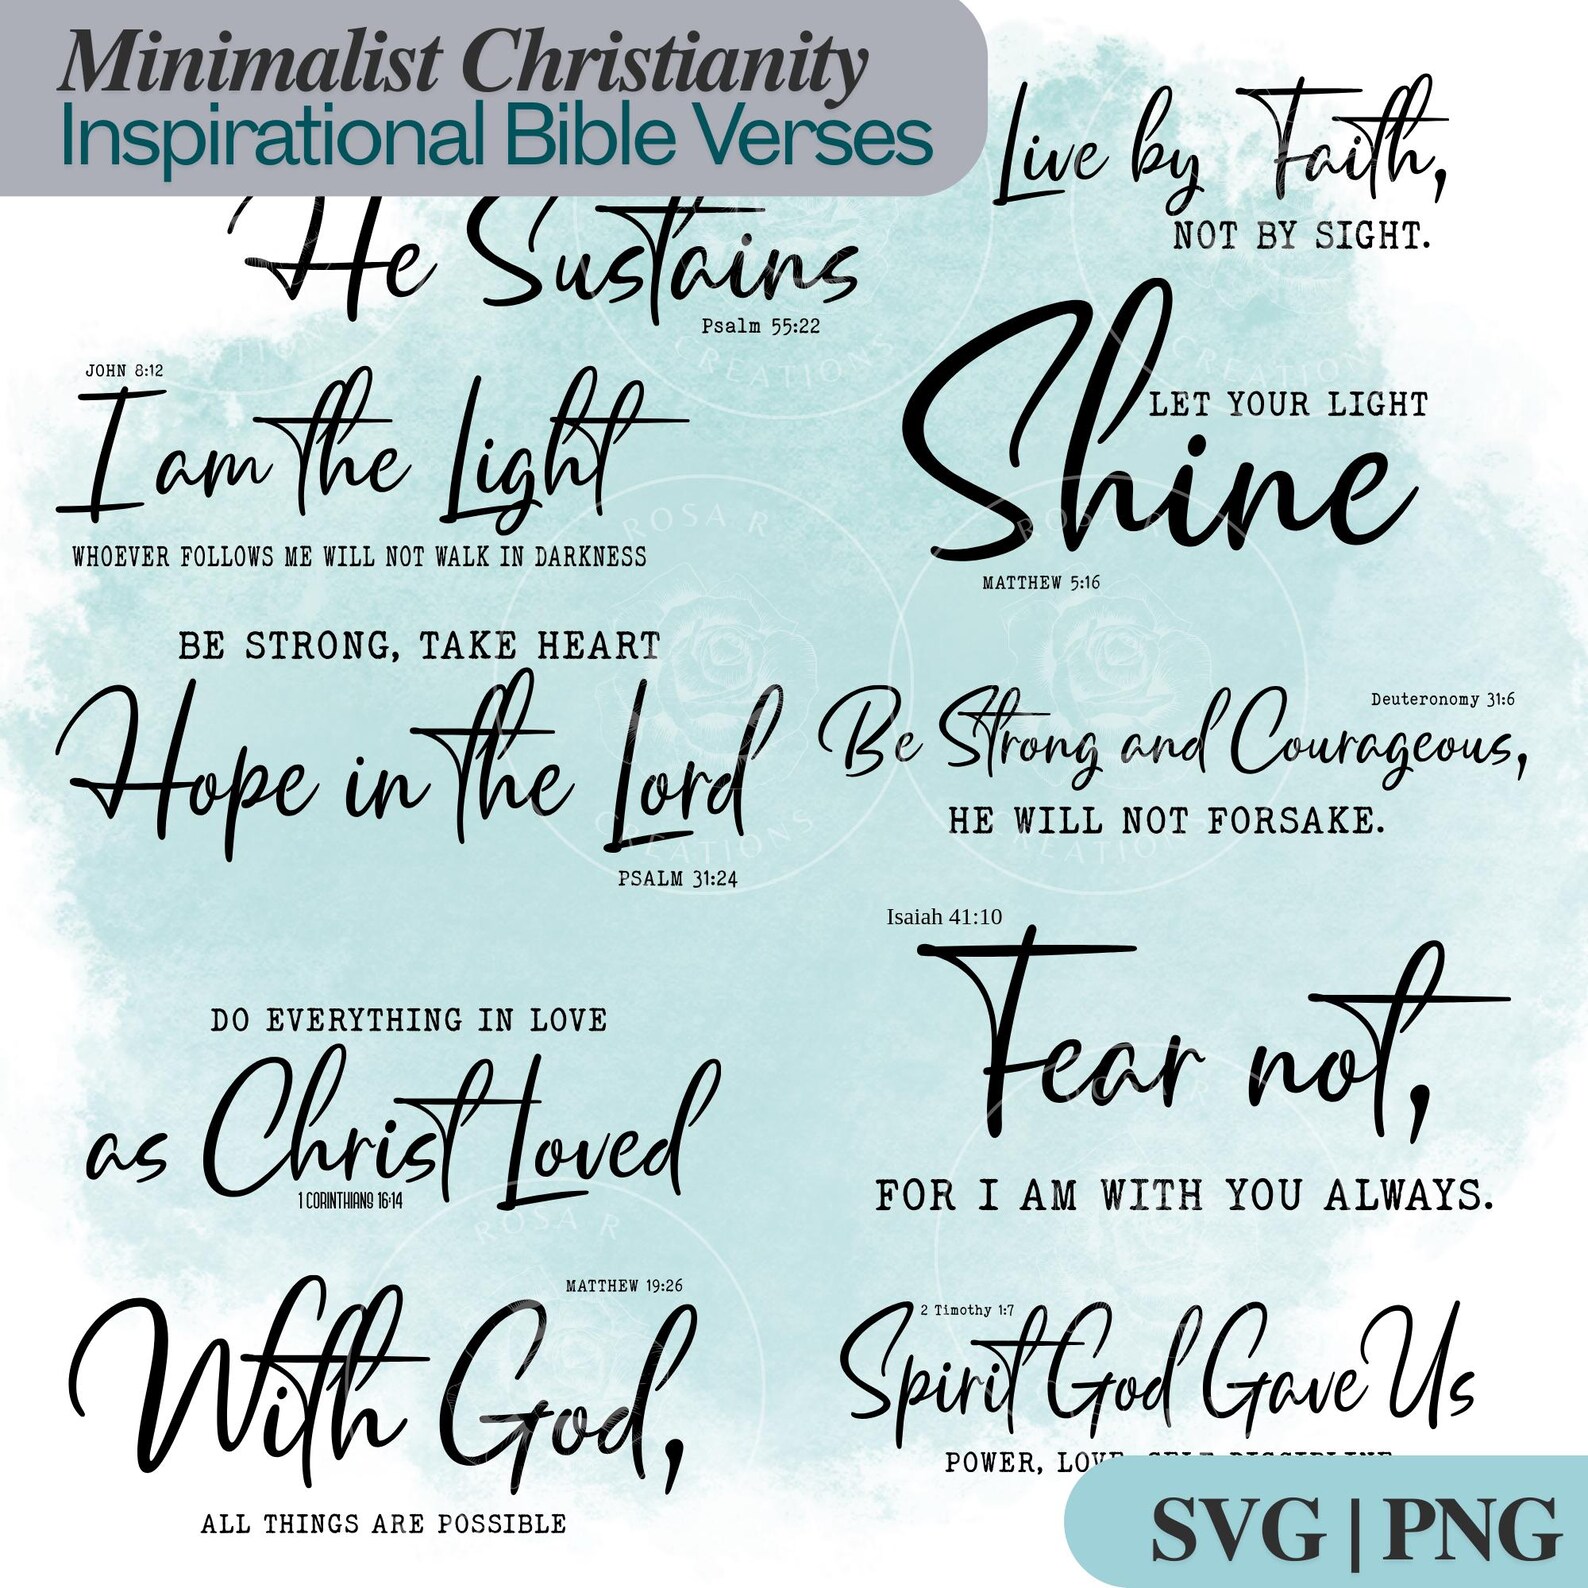 Minimalist Christianity
Inspirational Bible Verses
He Sustains
Psalm 55:22
Live by Faith,
NOT BY SIGHT.
JOHN 8:12
I am the Light
WHOEVER FOLLOWS ME WILL NOT WALK IN DARKNESS
LET YOUR LIGHT
Shine
MATTHEW 5:16
BE STRONG, TAKE HEART
Hope in the Lord
PSALM 31:24
Deuteronomy 31:6
Be Strong and Courageous,
HE WILL NOT FORSAKE.
DO EVERYTHING IN LOVE
as Christ Loved
1 CORINTHIANS 16:14
Isaiah 41:10
Fear not,
FOR I AM WITH YOU ALWAYS.
MATTHEW 19:26
With God,
ALL THINGS ARE POSSIBLE
2 Timothy 1:7
Spirit God Gave Us
POWER, LOVE, SELF DISCIPLINE
SVG | PNG
ROSA R
CREATIONS